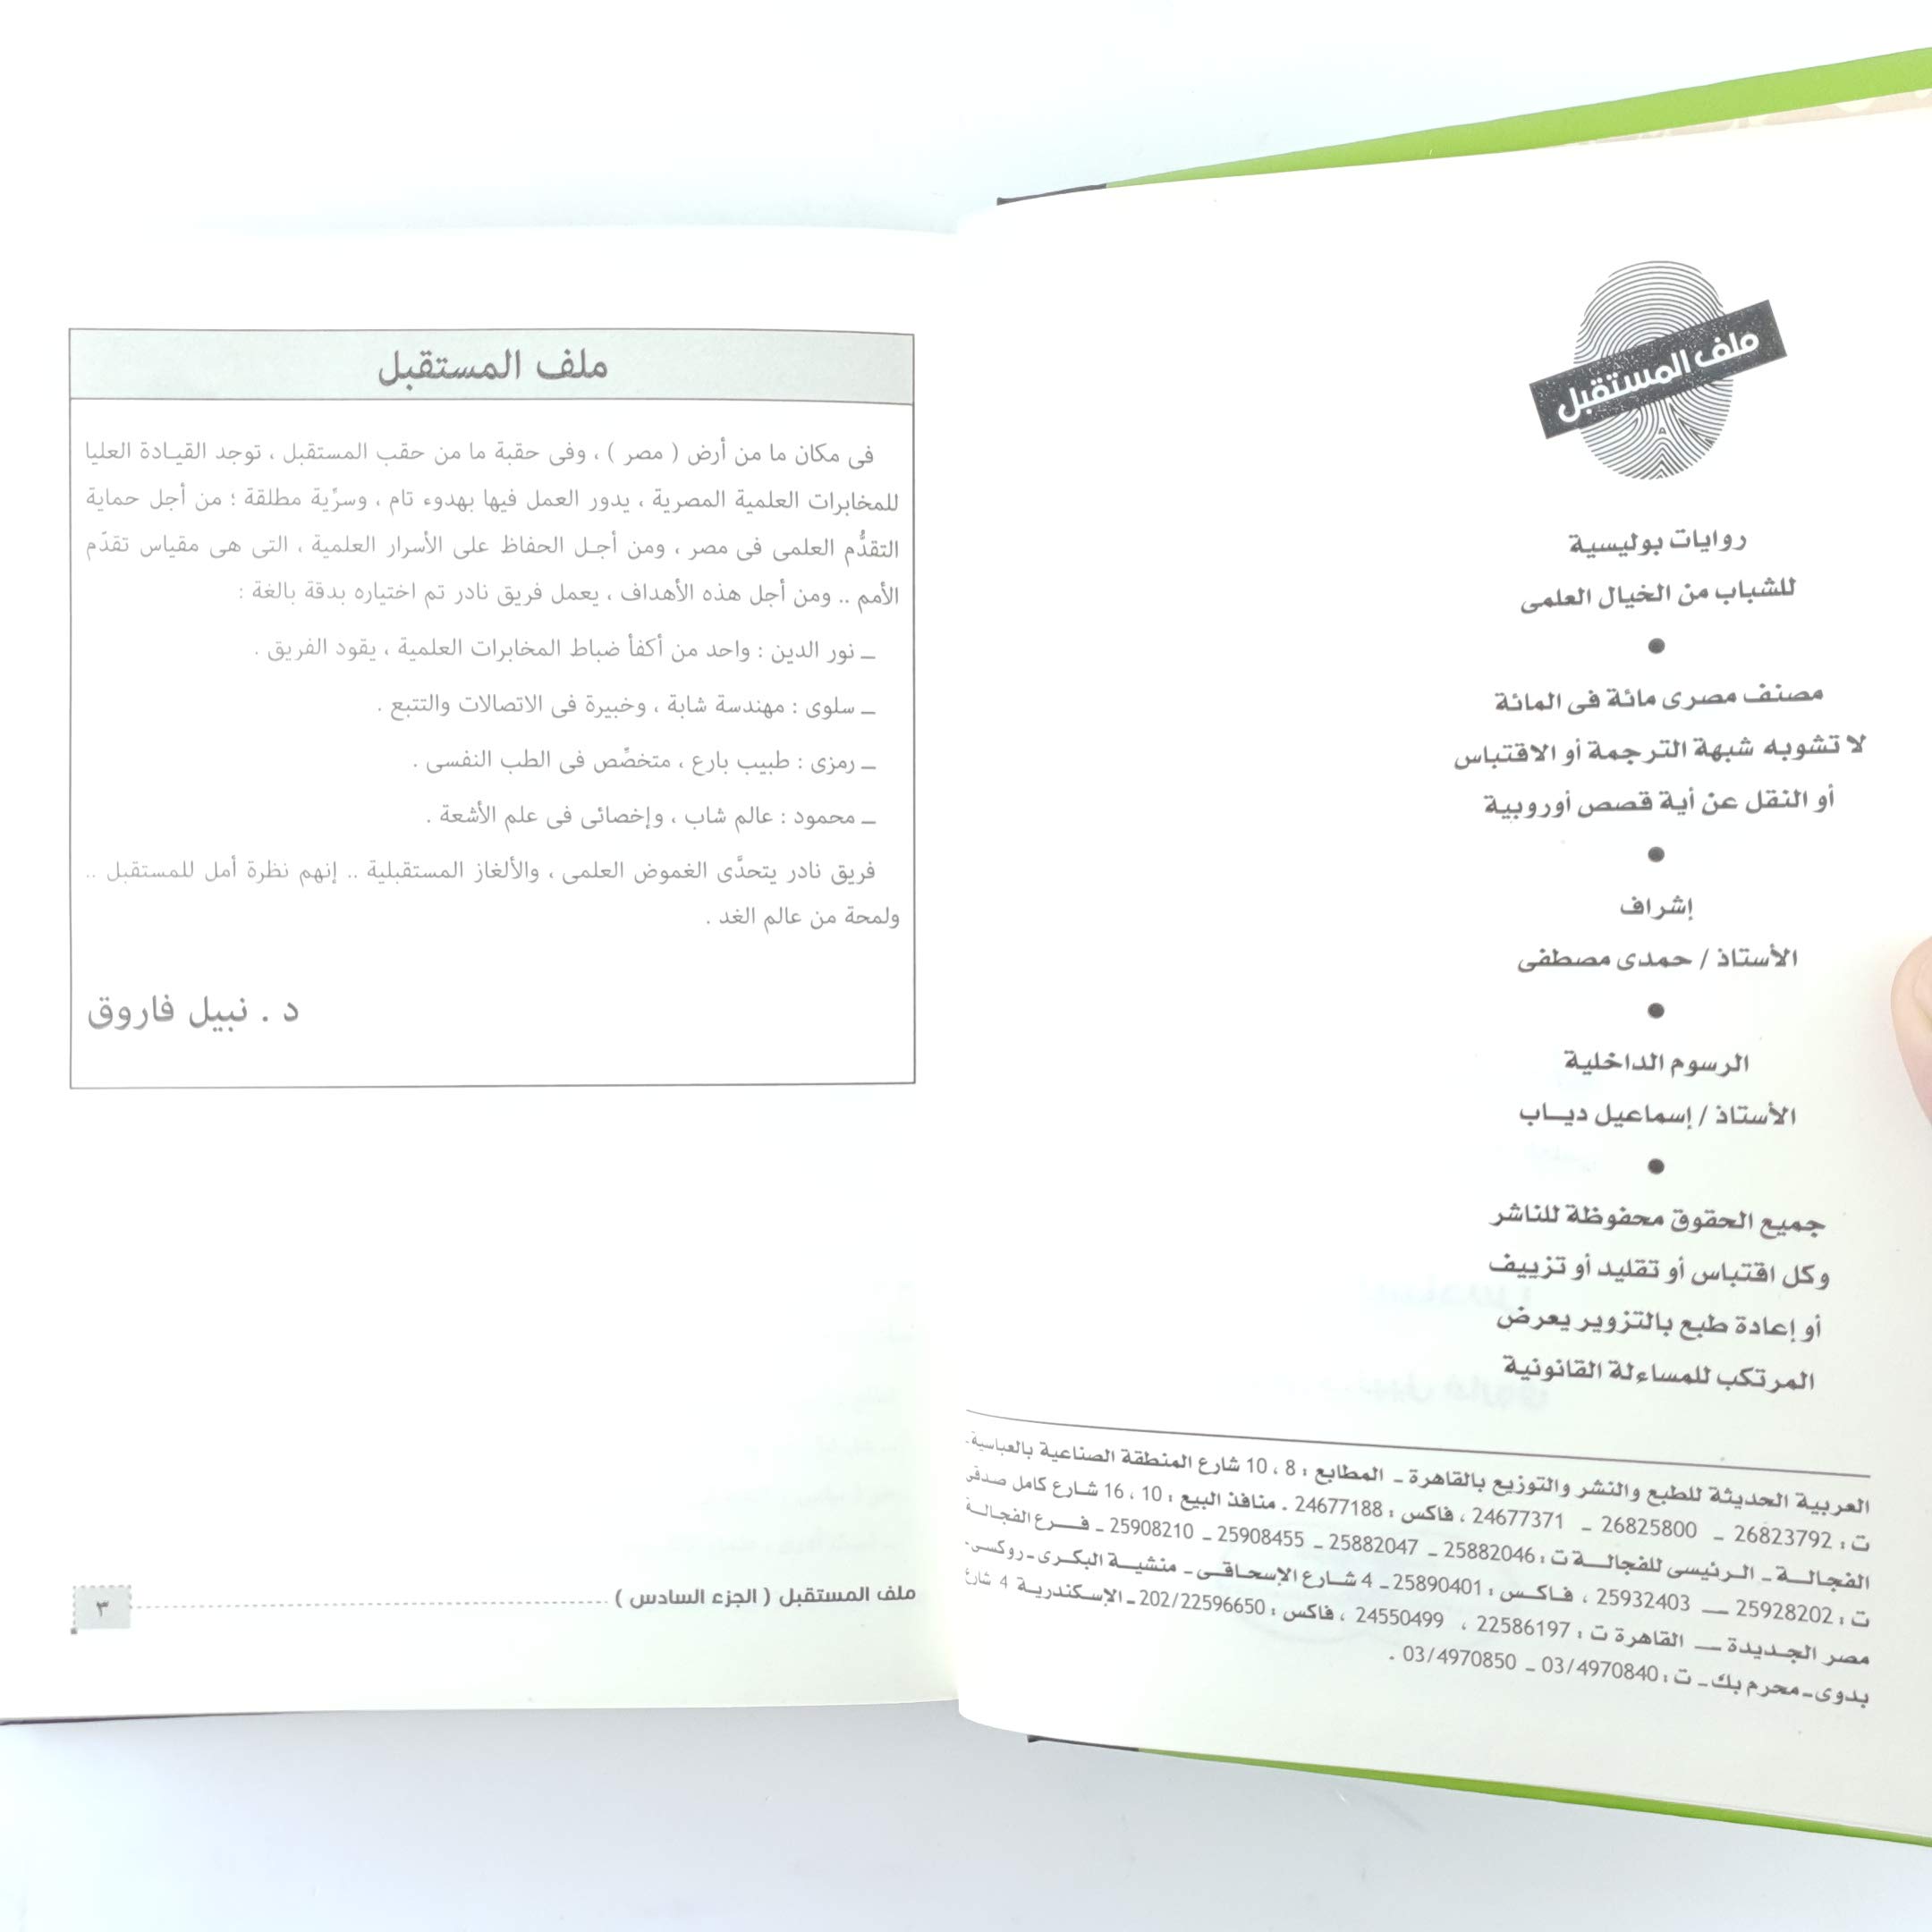 ملف المستقبل
روايات بوليسية
للشباب من الخيال العلمى
مصنف مصرى مائة فى المائة
لا تشوبه شبهة الترجمة أو الاقتباس
أو النقل عن أية قصص أوروبية
إشراف
الأستاذ / حمدى مصطفى
الرسوم الداخلية
الأستاذ / إسماعيل ديــاب
جميع الحقوق محفوظة للناشر
وكل اقتباس أو تقليد أو تزييف
أو إعادة طبع بالتزوير يعرض
المرتكب للمساءلة القانونية
العربية الحديثة للطبع والنشر والتوزيع بالقاهرة ـ المطابع : 8 ، 10 شارع المنطقة الصناعية بالعباسية ـ
ت : 26823792 ـ 26825800 ـ 24677371 ، فاكس : 24677188 . منافذ البيع : 10 ، 16 شارع كامل صدقى
الفجالــة ـ الرئيسى للفجالــة ت : 25882046 ـ 25882047 ـ 25908455 ـ 25908210 ـ فــرع الفجالــة
ت : 25928202 ــ 25932403 ، فـاكـس : 25890401 ـ 4 شـارع الإسحـاقـى ـ منشيـة البكـرى ـ روكسـى ـ
مصر الجـديـدة ــ القاهرة ت : 22586197 ، 24550499 ، فاكس : 202/22596650 ـ الإسكندرية 4 شارع
بدوى ـ محرم بك ـ ت : 03/4970840 ـ 03/4970850 .
ملف المستقبل
فى مكان ما من أرض ( مصر ) ، وفى حقبة ما من حقب المستقبل ، توجد القيـادة العليا
للمخابرات العلمية المصرية ، يدور العمل فيها بهدوء تام ، وسرِّية مطلقة ؛ من أجل حماية
التقدُّم العلمى فى مصر ، ومن أجـل الحفاظ على الأسرار العلمية ، التى هى مقياس تقدّم
الأمم .. ومن أجل هذه الأهداف ، يعمل فريق نادر تم اختياره بدقة بالغة :
ــ نور الدين : واحد من أكفأ ضباط المخابرات العلمية ، يقود الفريق .
ــ سلوى : مهندسة شابة ، وخبيرة فى الاتصالات والتتبع .
ــ رمزى : طبيب بارع ، متخصِّص فى الطب النفسى .
ــ محمود : عالم شاب ، وإخصائى فى علم الأشعة .
فريق نادر يتحدَّى الغموض العلمى ، والألغاز المستقبلية .. إنهم نظرة أمل للمستقبل ..
ولمحة من عالم الغد .
د . نبيل فاروق
ملف المستقبل ( الجزء السادس )
٣